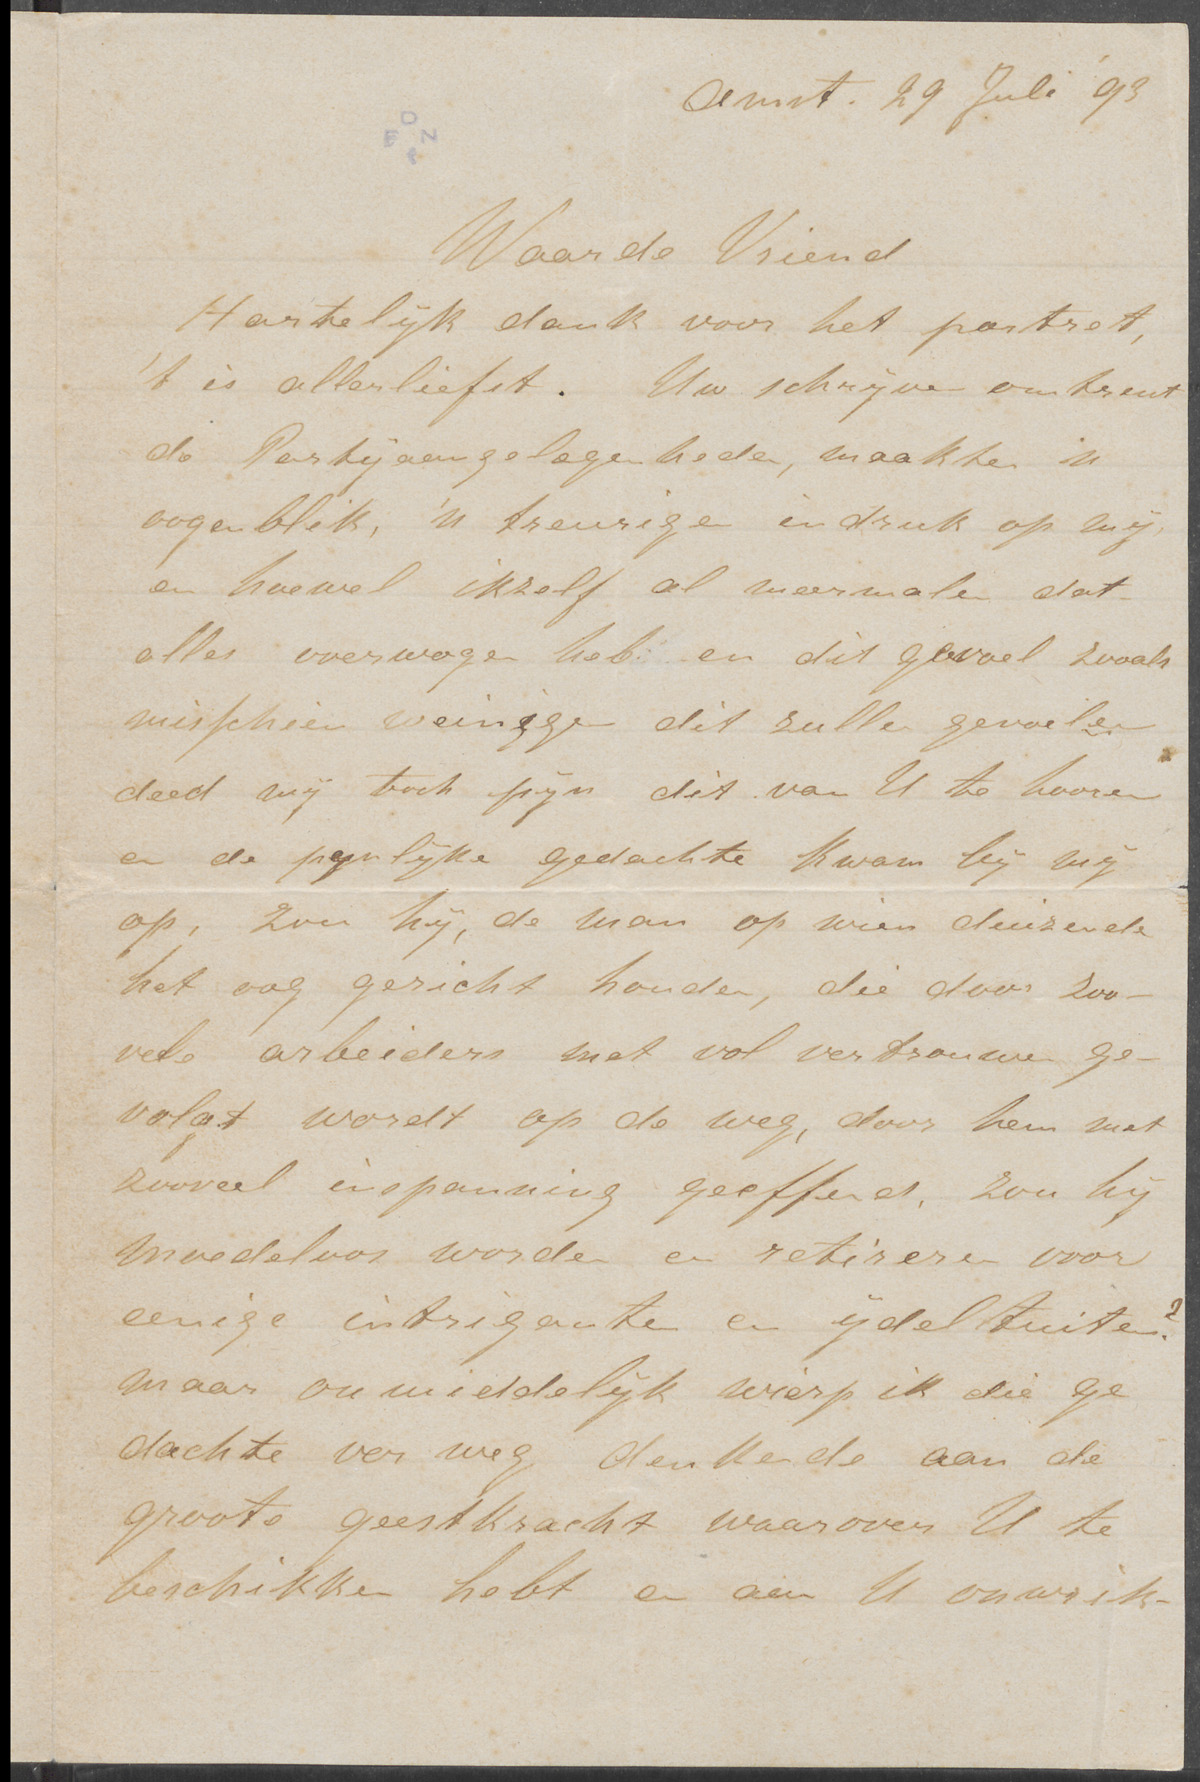 Amst. 29 Juli '93
D
E N
Waarde Vriend
Hartelijk dank voor het portret,
't is allerliefst. Uw schrijven omtrent
de Partijaangelegenheden, maakten 'n
oogenblik, 'n treurigen indruk op mij,
en hoewel ikzelf al meermalen dat
alles overwogen heb en dit gevoel zooals
misschien weinigen dit zullen gevoelen
deed mij toch pijn dit van U te hooren
en de pynlijke gedachte kwam bij mij
op, zou hij, de man op wien duizende
het oog gericht houden, die door zoo-
vele arbeiders met vol vertrouwen ge-
volgt wordt op de weg, door hem met
zooveel inspanning geeffend, zou hij
moedeloos worden en retireren voor
eenige intrigante en ijdeltuiten?
maar onmiddelijk wierp ik die ge
dachte ver weg denkende aan de
groote geestkracht waarover U te
beschikken hebt en aan U onwrik-